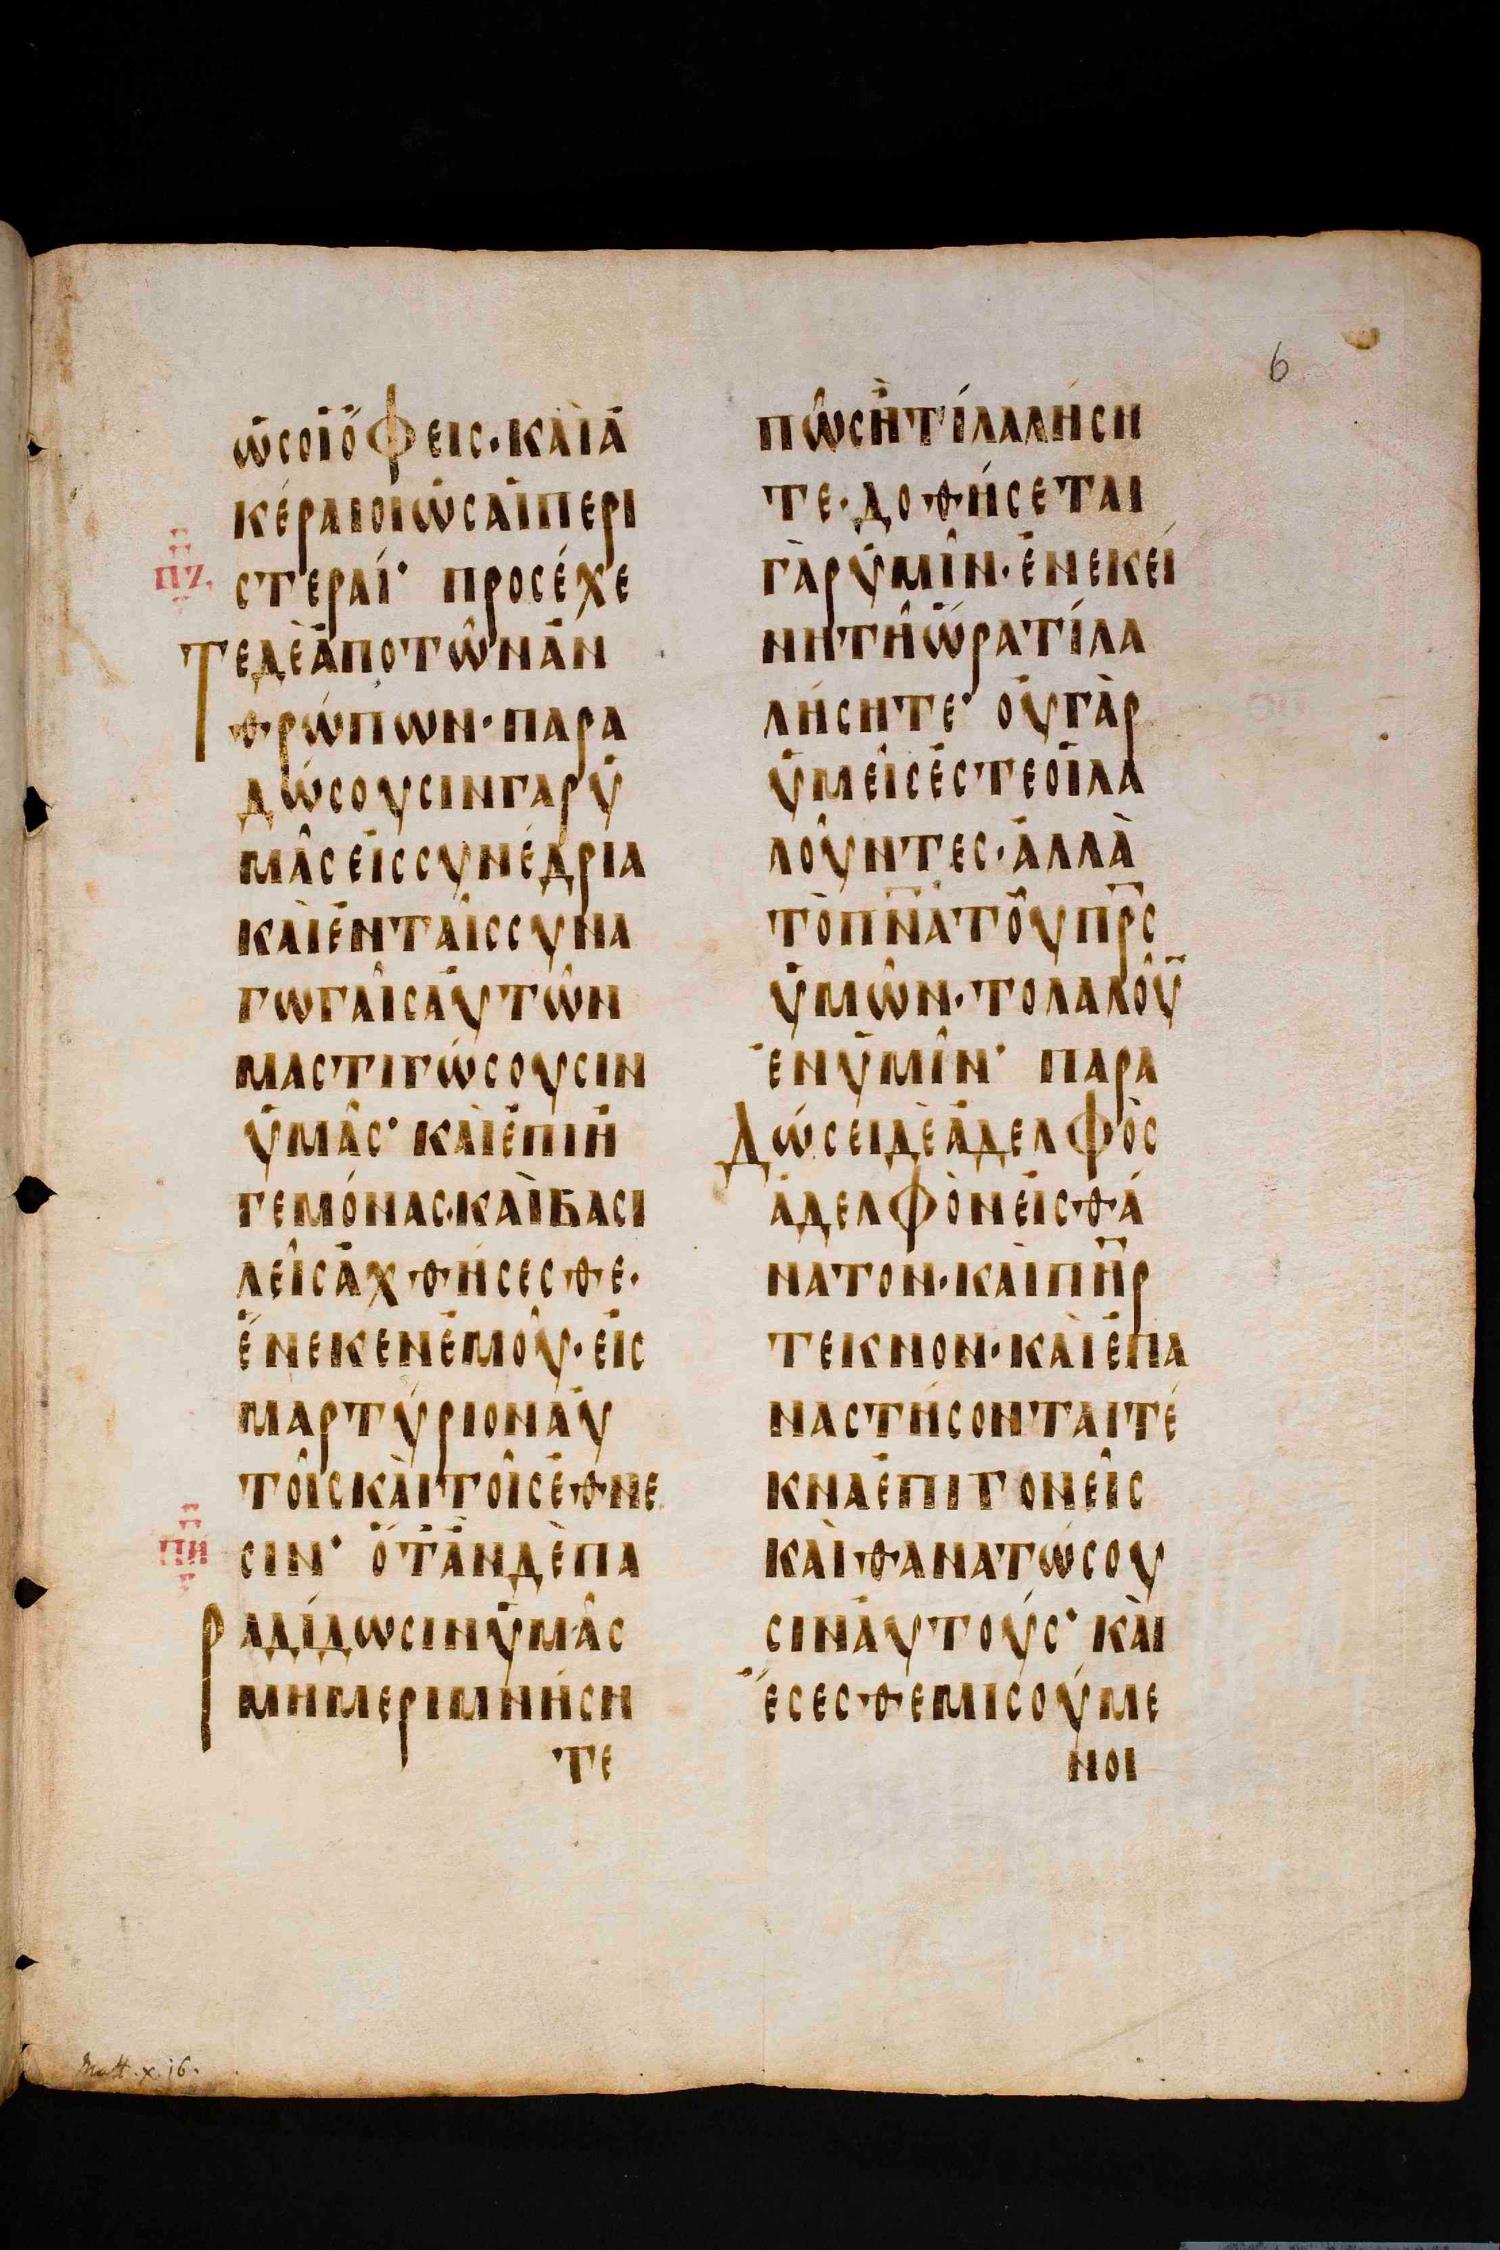 6
ὡσοἱὄφεις·καὶἀ
κέραιοιὡσαἱπερι
πζ
στεραί· προσέχε
τεδὲἀποτῶνἀν
θρώπων·παρα
δώσουσινγαρὑ
μᾶςεἰςσυνέδρια
καὶἐνταῖςσυνα
γωγαῖςαὐτῶν
μαστιγώσουσιν
ὑμᾶς· καὶἐπιἡ
γεμόνας·καὶβασι
λεῖςἀχθήσεσθε·
ἕνεκενἐμοῦ·εἰς
μαρτύριοναὐ
τοῖςκαὶτοῖςἔθνε
πη
σιν· ὅτἂνδὲπα
ραδίδωσινὑμᾶς
μημεριμνήση
τε
πῶςἢτίλαλήση
τε·δοθήσεται
γὰρὑμῖν·ἐνεκεί
νητῆὥρατίλα
λήσητε· οὐγὰρ
ὑμεῖςἐστεοἱλα
λοῦντες·ἀλλὰ
τὸπ̅ν̅ατοῦπ̅ρ̅ς
ὑμῶν·τολαλοῦ̅
ἐνὑμῖν· παρα
δώσειδὲἀδελφὸς
ἀδελφὸνεἰςθά
νατον·καὶπ̅η̅ρ
τεκνον·καὶἐπα
ναστήσονταιτέ
κναἐπιγονεῖς
καὶθανατώσου
σιναὐτούς· καὶ
ἔσεσθεμισούμε
νοι
Matt. x. 16.